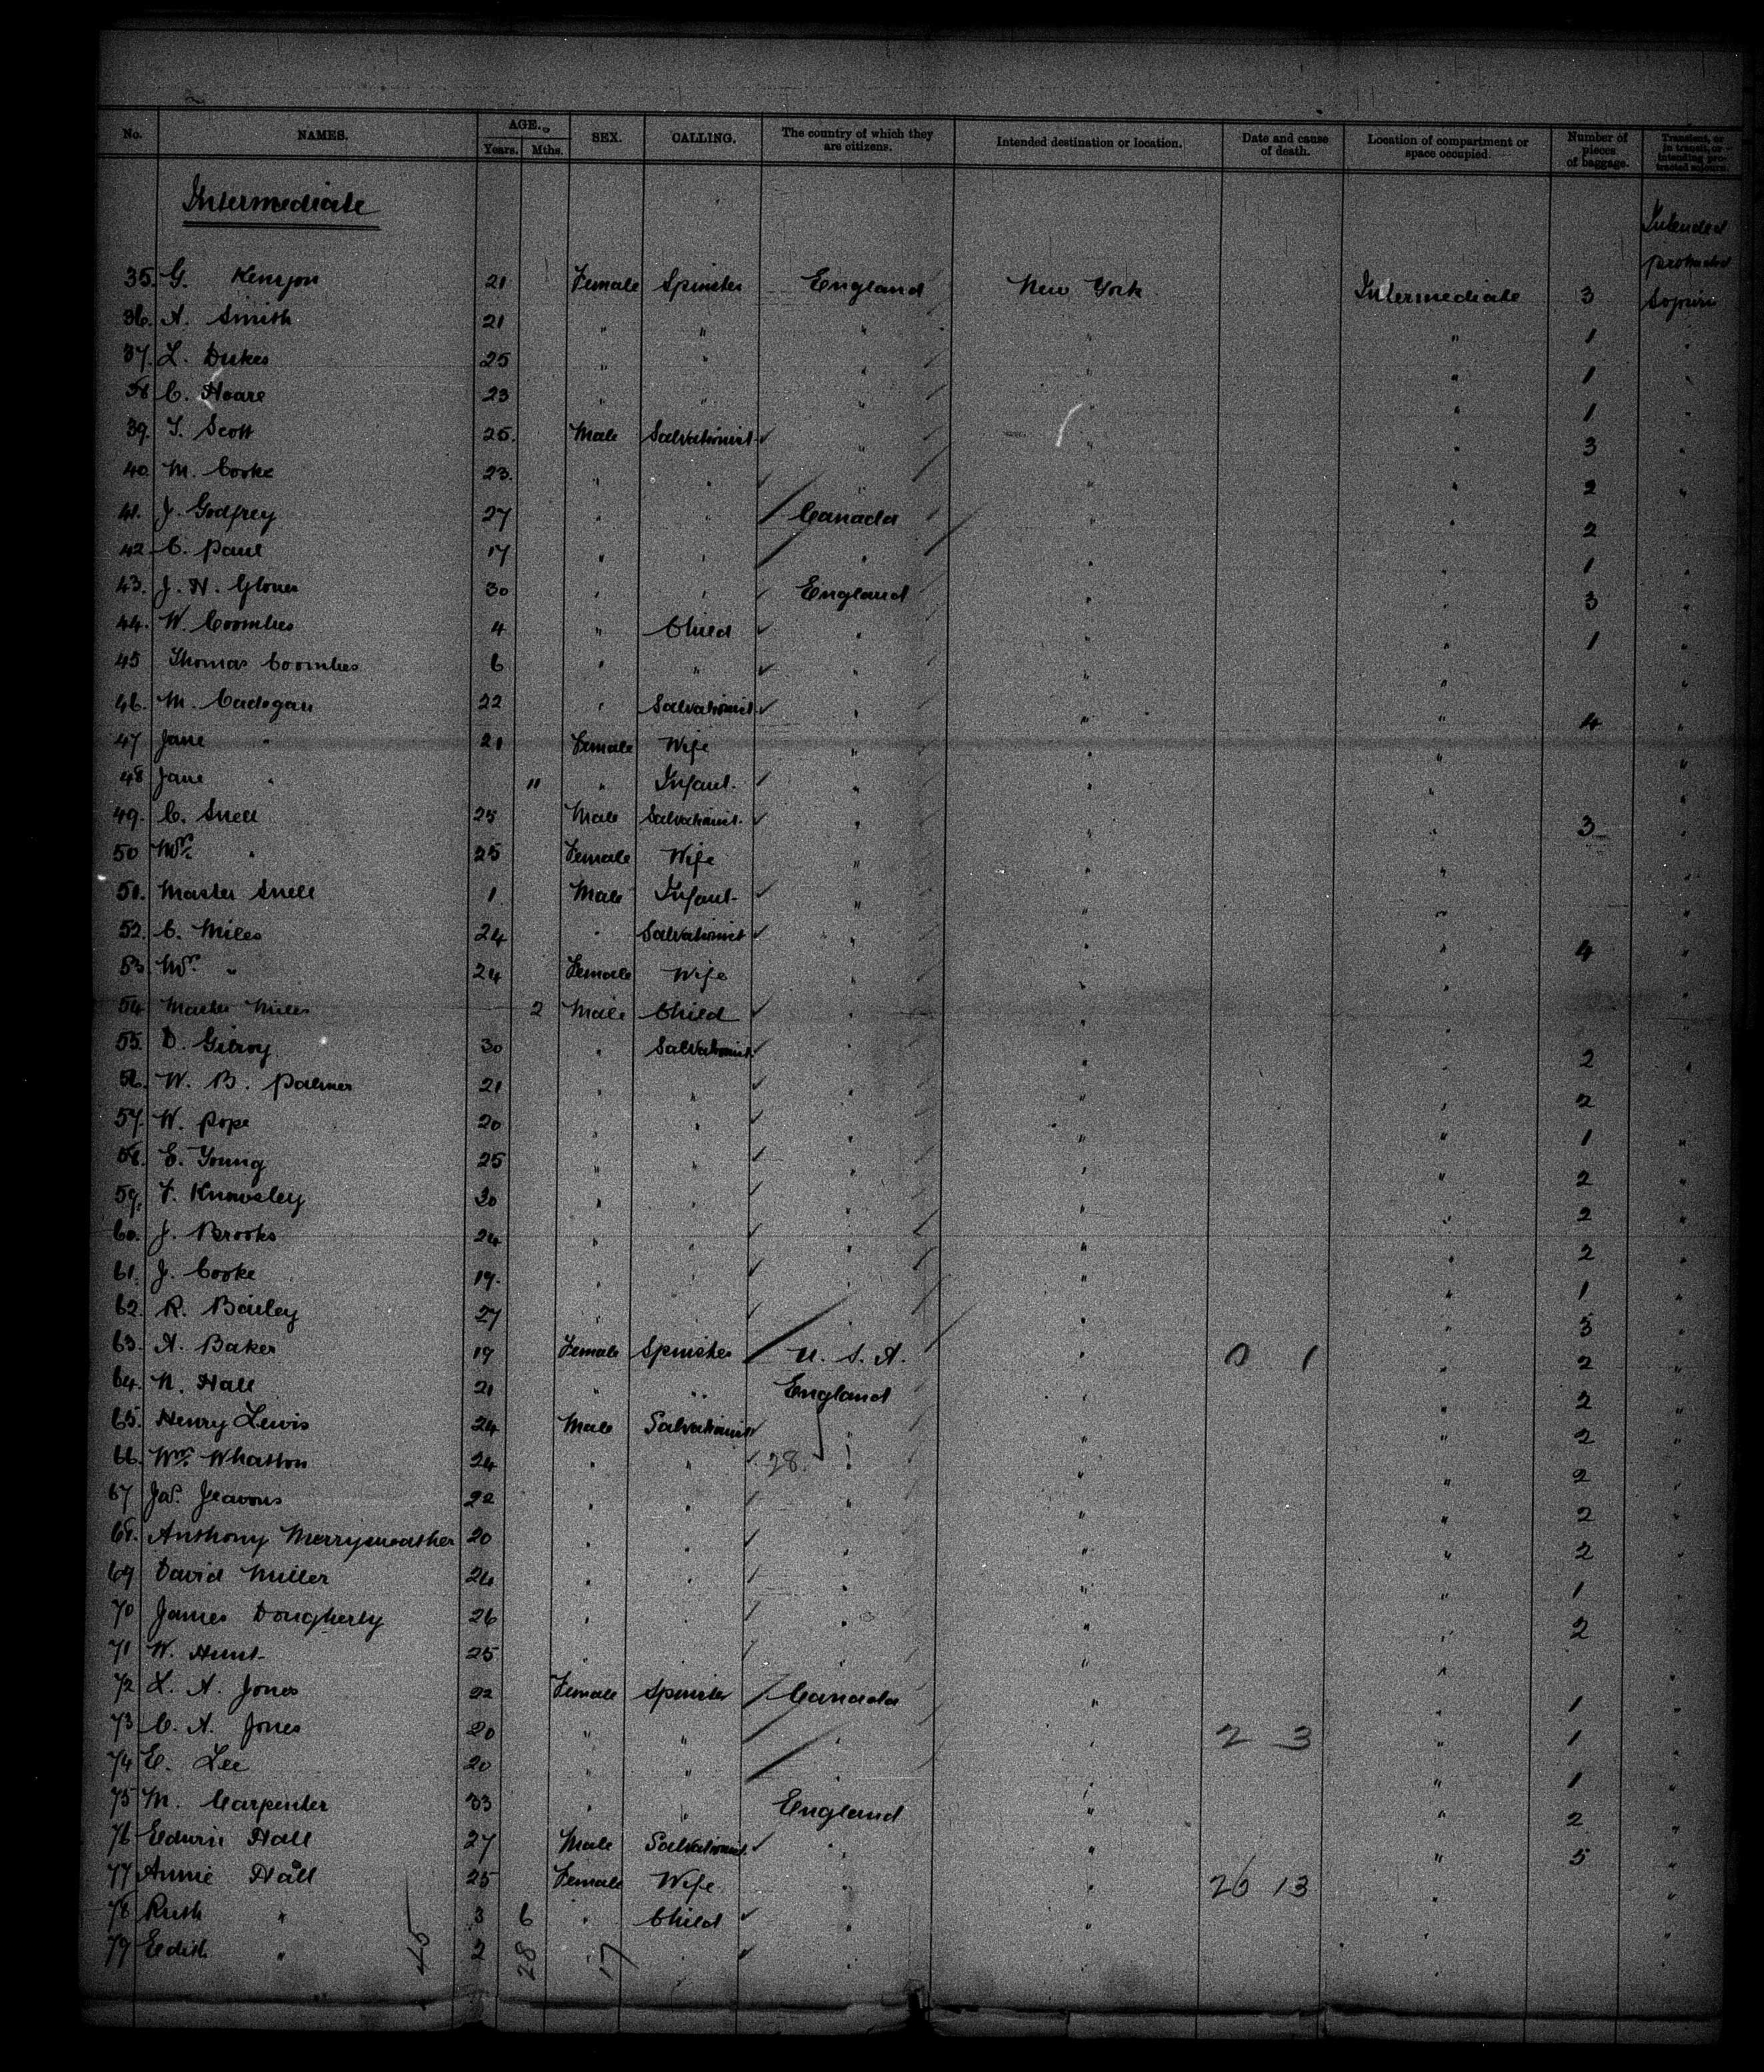 No. NAMES. AGE. Years. Mths. SEX. CALLING. The country of which they are citizens. Intended destination or location. Date and cause of death. Location of compartment or space occupied. Number of pieces of baggage. Transient, or in transit, or intending protracted sojourn.
Intermediate
Intended
35. G. Kenyon 21 Female Spinster England New York Intermediate 3
36. A. Smith 21 " " " " " 1 "
37. L. Dukes 25 " " " " " 1 "
38 C. Hoare 23 " " " " " 1 "
39. T. Scott 25. Male Salvationist " " " 3 "
40. M. Cooke 23. " " " " " 2 "
41. J. Godfrey 27 " " Canada " " 2
42. C. Paul 17 " " " " " 1 "
43. J. H. Glover 30 " " England " " 3 "
44. W. Coombes 4 " Child " " " 1 "
45 Thomas Coombes 6 " " " " " "
46. M. Cadogan 22 " Salvationist " " " 4 "
47 Jane " 21 Female Wife " " " "
48 Jane " 11 " Infant. " " " "
49. C. Snell 25 Male Salvationist. " " " 3 "
50 Mrs. " 25 Female Wife " " " "
51. Master Snell 1 Male Infant " " " "
52. C. Miles 24 " Salvationist " " " 4 "
53 Mrs. " 24 Female Wife " " " "
54 Master Miles 2 Male Child " " " "
55. D. Gilroy 30 " Salvationist " " " 2 "
56. W. B. Palmer 21 " " " " " 2
57. W. Pope 20 " " " " " 1 "
58. E. Young 25 " " " " " 2 "
59. F. Knowsley 30 " " " " " 2 "
60. J. Brooks 24 " " " " " 2 "
61. J. Cooke 19. " " " " " 1 "
62. R. Bailey 27 " " " " " 3 "
63. A. Baker 19 Female Spinster U. S. A. " 0 1 " 2 "
64. N. Hall 21 " " England " " 2 "
65. Henry Lewis 24 Male Salvationist " " " 2 "
66. Wm. Whatton 24 " " 28 " " " 2 "
67 Jas. Jeavons 22 " " " " " 2 "
68. Anthony Merryweather 20 " " " " " 2 "
69 David Miller 24 " " " " " 1 "
70 James Dougherty 26 " " " " " 2
71 W. Hunt 25 " " " " " "
72 L. A. Jones 22 Female Spinster Canada " " 1 "
73 C. A. Jones 20 " " " " 2 3 " 1 "
74 E. Lee 20 " " " " " 1 "
75 M. Carpenter 33 " " England " " 2 "
76 Edwin Hall 27 Male Salvationist. " " " 5 "
77 Annie Hall 25 Female Wife " " 26 13 " "
78 Ruth " 3 6 " Child " " " "
79 Edith " 2 " " " " " "
45 28 17